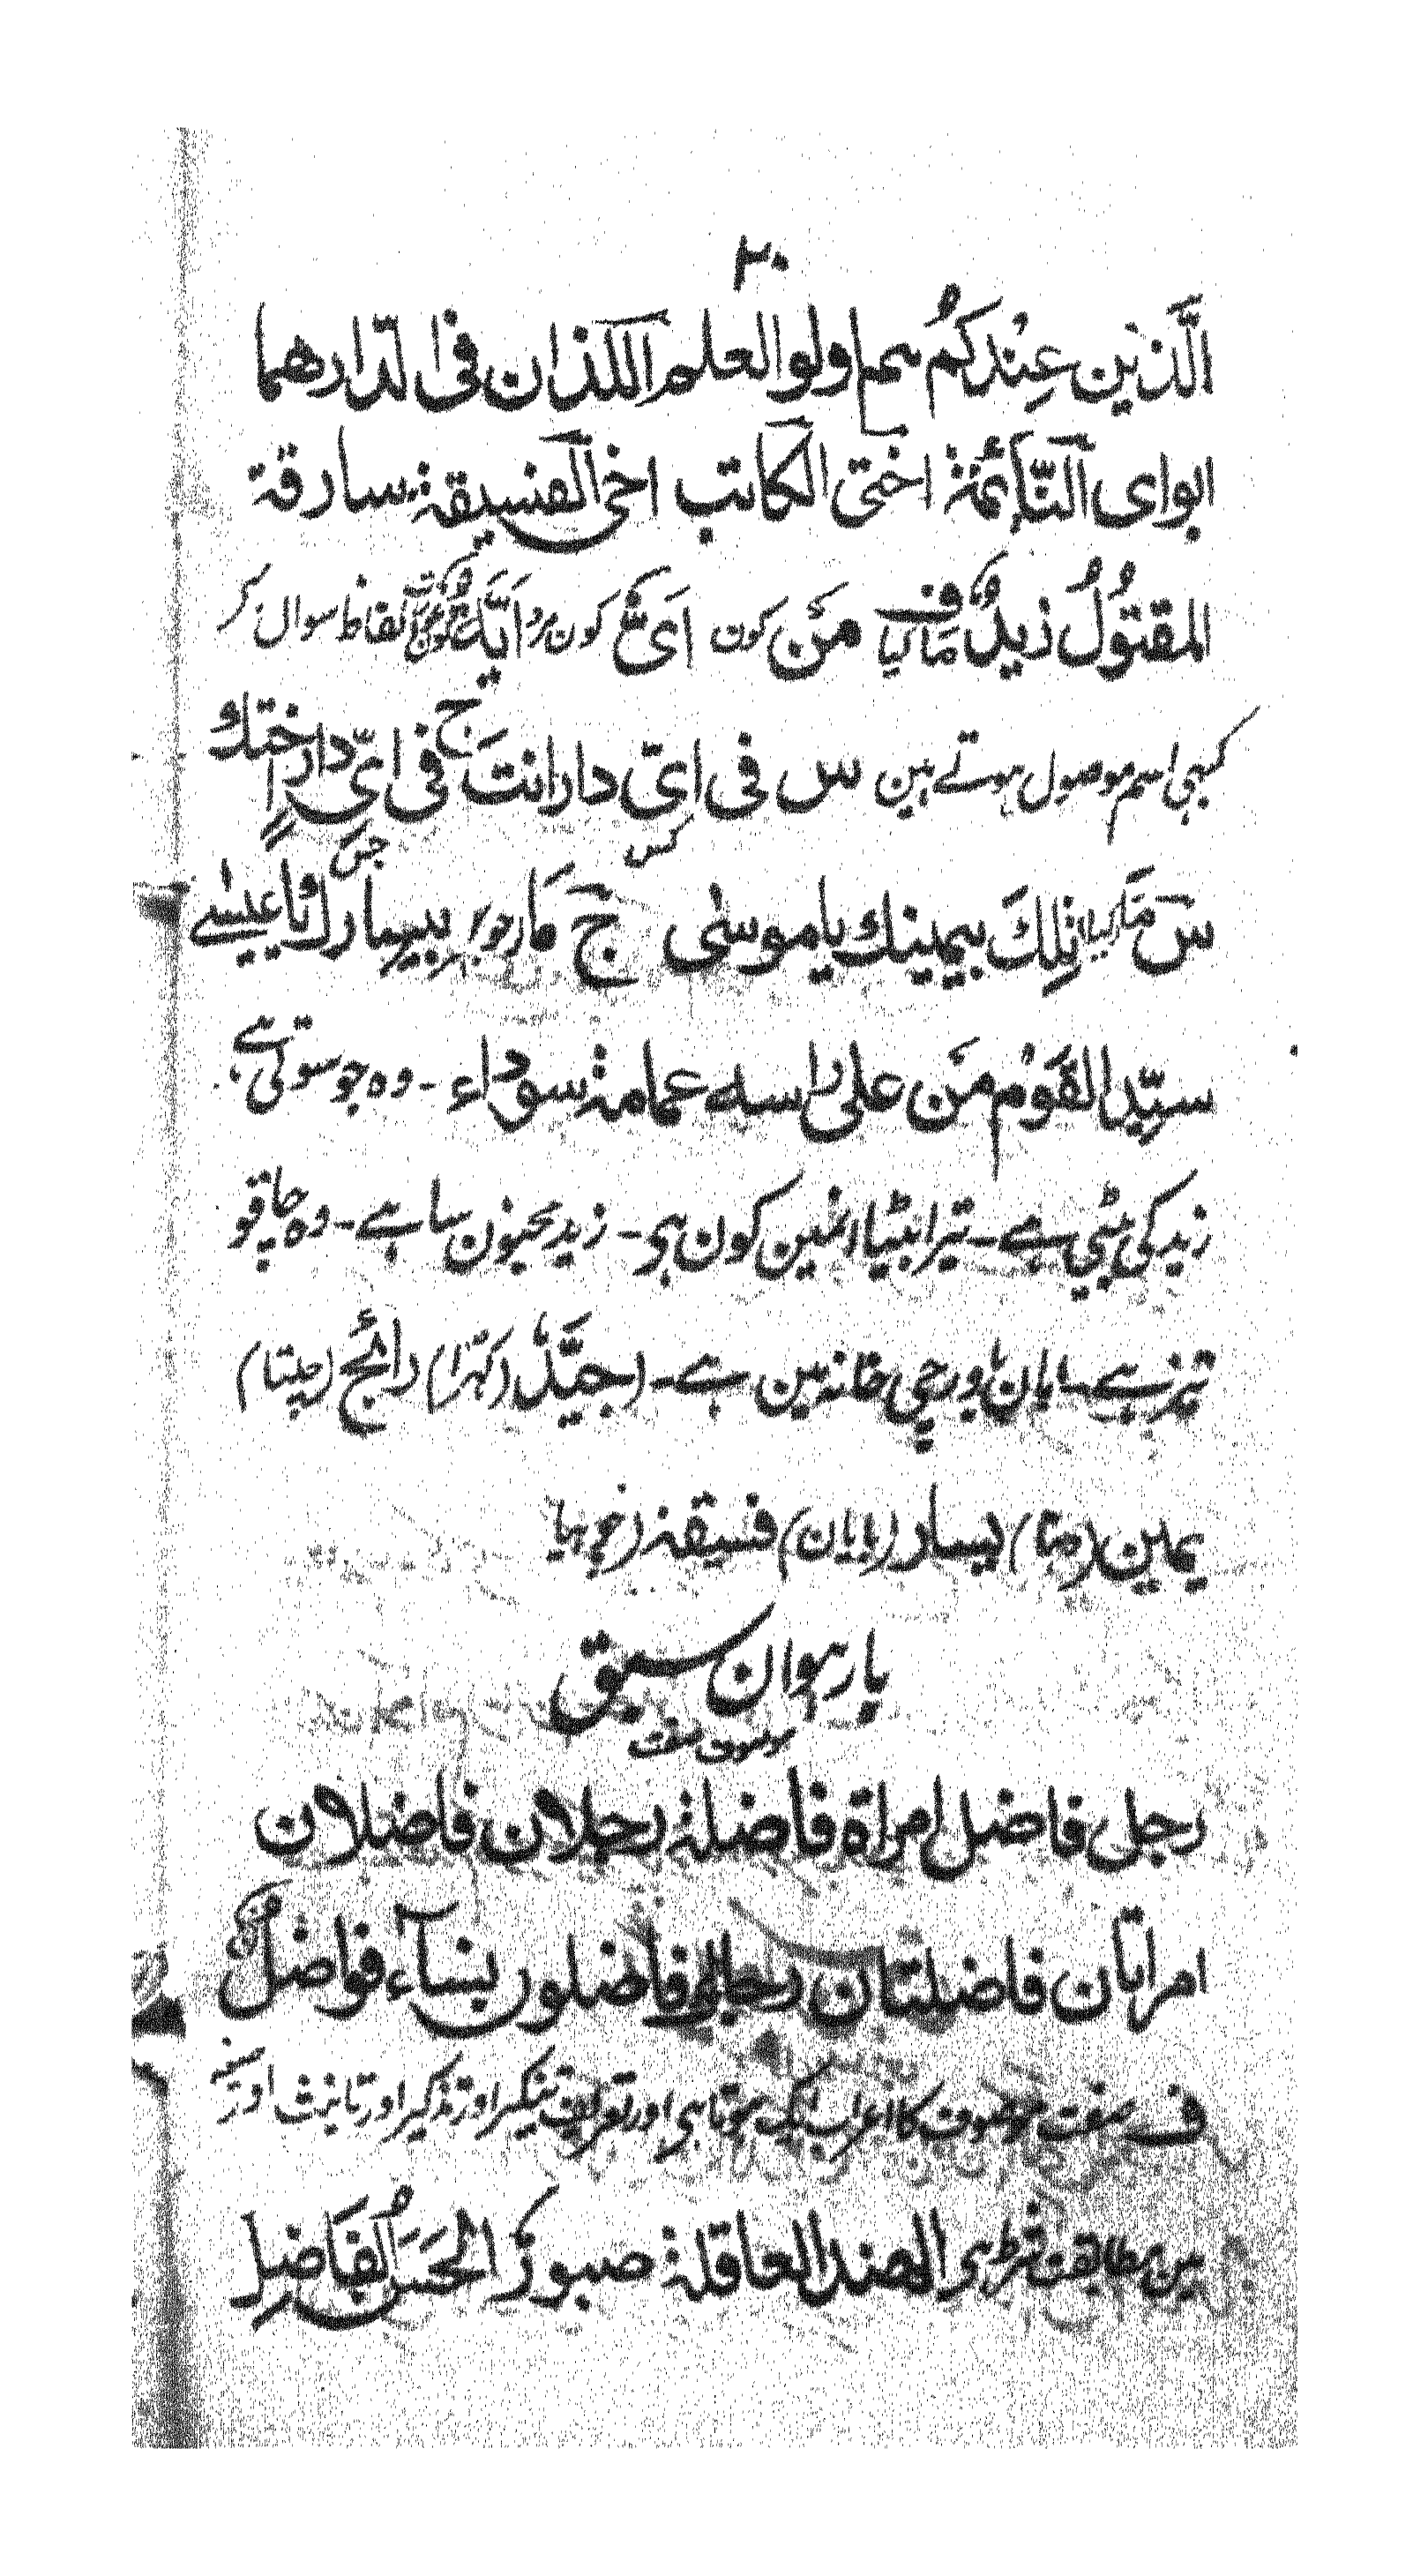 ۲۰
الَّذین عِنْدکُم ہم اولو العلم اللذان فی الدار ھما
ابوای النَّائمۃ اختی الکاتب اخی الفسیقۃ سارقۃ
المقتُولُ زیدٌ ف مَا کیا مَنْ کون اَیّ کون مرد اَیَّۃ کون عورت الفاظ سوال
کبھی اسم موصول ہوتے ہین س فی ایّ دار انتَ ج فی ایّ دار اختك
س مَا کیا تِلكَ بیمینك یا موسٰی ج مَا جو بیسارك یا عیسے
سیّد القَوْم مَن علی راسه عمامۃ سوداء - وہ جو سوتی ہے
زید کی بیٹی ہے - تیرا بیٹا انمین کون ہی - زید مجنون سا ہے - وہ چاقو
تیز ہے - باورچی خانہ مین ہے - (جیّدٌ (کھرا) رائج (چلتا)
یمین (دہنا) یسار (بایان) فسیقۃ
بارہوان سبق
موصوف صفت
رجل فاضل امراۃ فاضلۃ رجلان فاضلان
امراتان فاضلتان رجال فاضلون نساء فواضل
ف صفت موصوف کا اعراب ایک ہوتا ہی اور تعریف تنکیر اور تذکیر اور تانیث اور
مین مطابقت شرط ہی الھند العاقلۃ صبور الحَسَن الفَاضِل